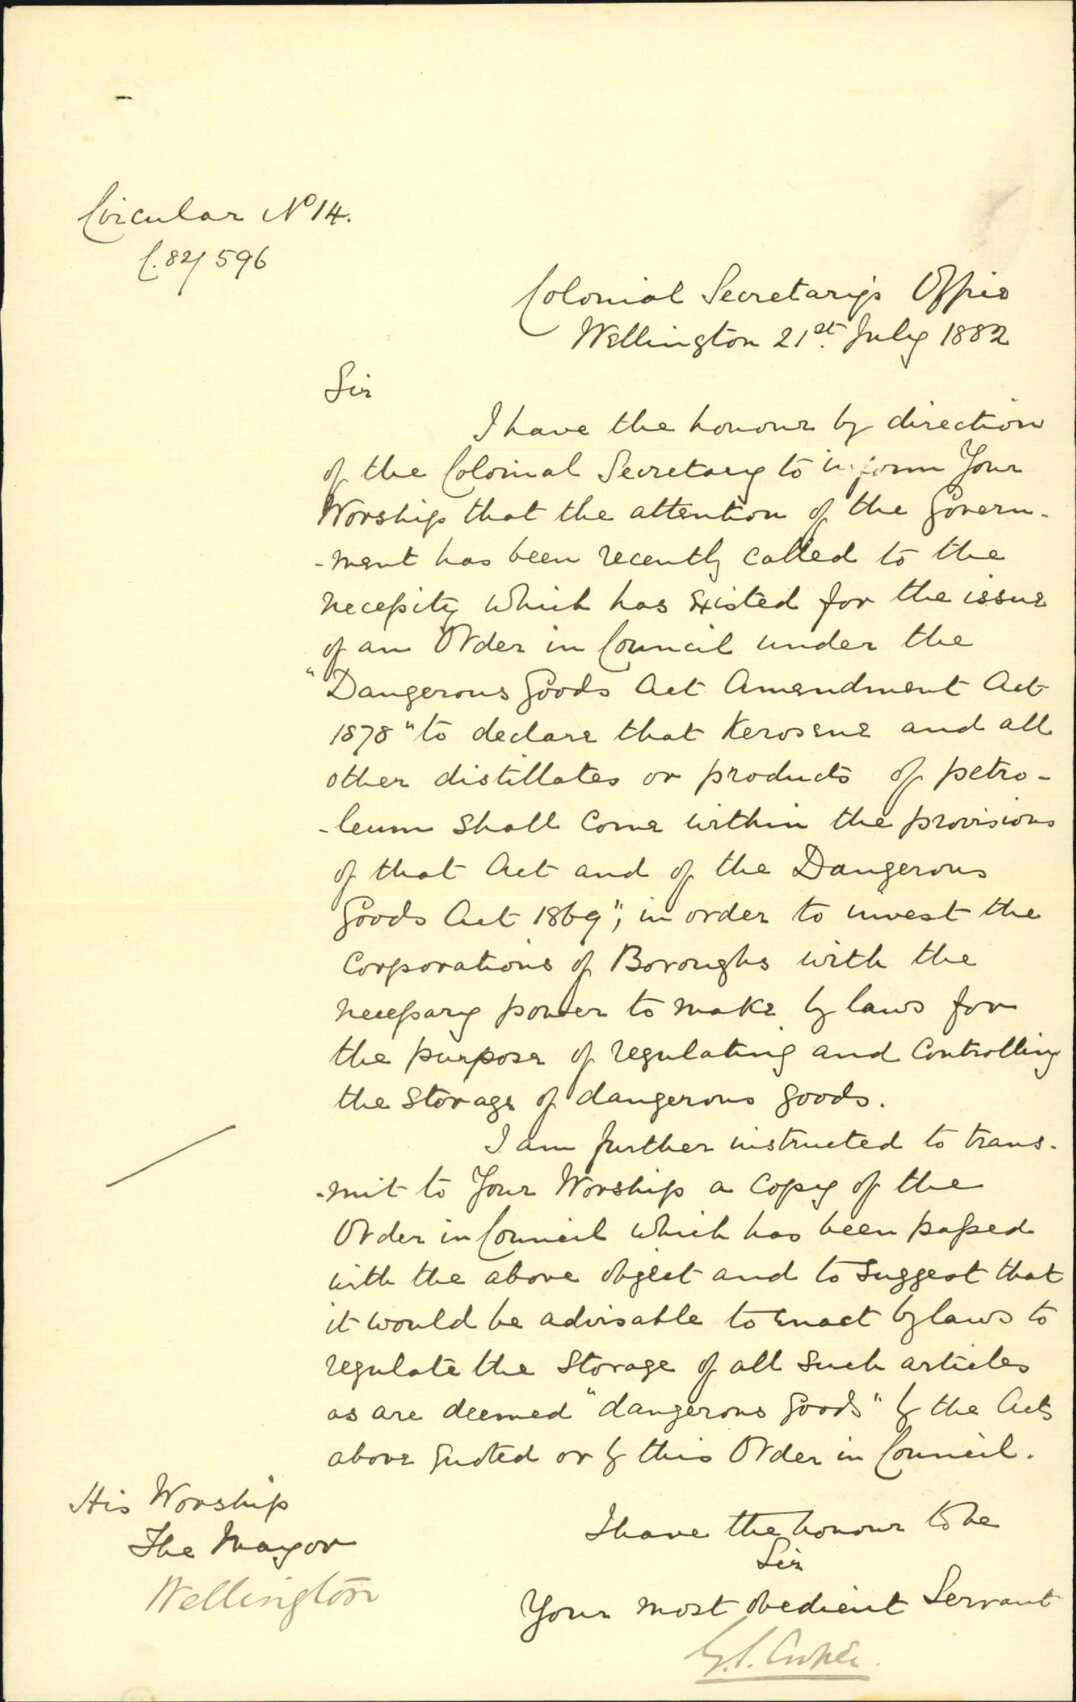 Circular No 14.
C.82/596
Colonial Secretary's Office
Wellington 21st. July 1882
Sir
I have the honour by direction
of the Colonial Secretary to inform Your
Worship that the attention of the Govern-
-ment has been recently called to the
necessity which has existed for the issue
of an Order in Council under the
"Dangerous Goods Act Amendment Act
1878" to declare that Kerosene and all
other distillates or products of petro-
-leum shall come within the provisions
of that Act and of the Dangerous
Goods Act 1869", in order to invest the
Corporations of Boroughs with the
necessary power to make by laws for
the purpose of regulating and controlling
the storage of dangerous goods.
I am further instructed to trans-
-mit to Your Worship a copy of the
Order in Council which has been passed
with the above object and to suggest that
it would be advisable to enact bylaws to
regulate the storage of all such articles
as are deemed "dangerous goods" by the Acts
above quoted or by this Order in Council.
I have the honour to be
Sir
Your most obedient Servant
G.S. Cooper.
His Worship
The Mayor
Wellington